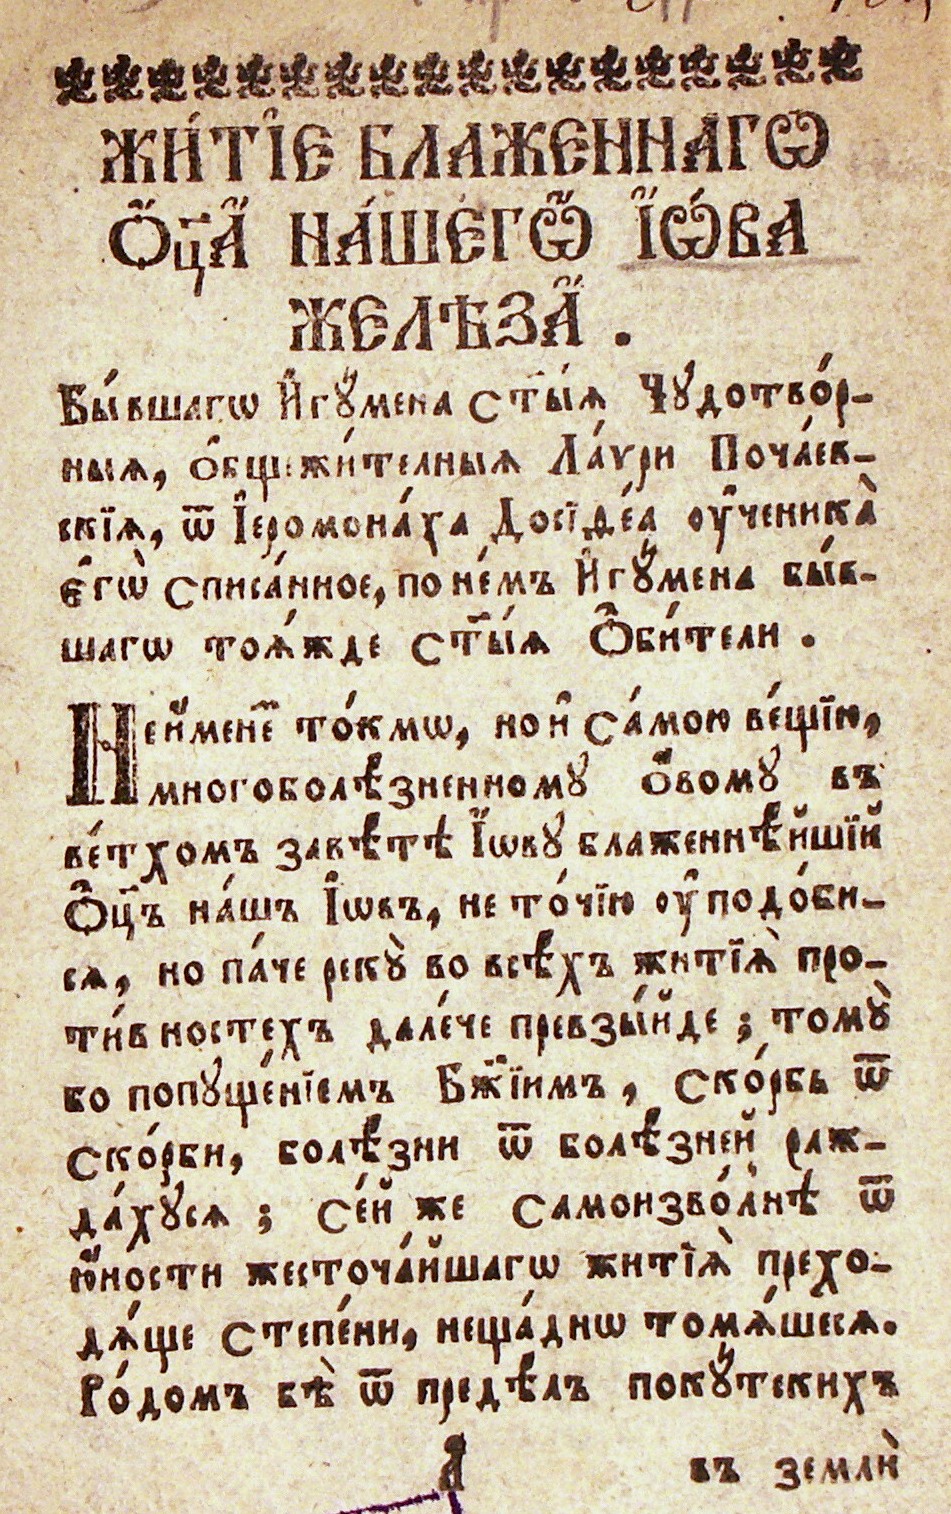 ЖИ́ТІЕ БЛАЖЕННАГѠ
Ѻ҆ц҃А̀ НА́ШЕГѠ І҆Ѡ́ВА
ЖЕЛѢЗА̀ .
Бы́вшагѡ И҆гꙋ́мена ст҃ы́ѧ Чꙋдотво́р-
ныѧ, ѻ҆бщежи́телныѧ Ла́ѵри Поча́ев-
скїѧ, ѿ І҆еромона́ха Досїѳе́а оу҆ченика̀
є҆гѡ̀ списа́нное, по не́мъ И҆гꙋ́мена бы́в-
шагѡ тоѧ́жде ст҃ы́ѧ Ѻ҆би́тели .
Не и҆́мене́ то́кмѡ, но и҆ са́мою ве́щїю,
многоболѣ́зненномꙋ ѻ҆́вомꙋ въ
ве́тхомъ завѣ́тѣ І҆́ѡвꙋ блаженнѣ́йшїй
Ѻ҆ц҃ъ на́шъ І҆ѡвъ, не то́чїю оу҆подо́би-
сѧ, но па́че рекꙋ̀ во всѣ́хъ житїѧ̀ про-
ти́вностехъ дале́че превзы́йде ; томꙋ̀
бо попꙋще́нїемъ Бж҃їимъ, ско́рбь ѿ
ско́рби, болѣ́зни ѿ болѣ́зней раж-
да́хꙋсѧ ; се́й же самоизво́лнѣ ѿ
ю҆́ности жесточа́йшагѡ житїѧ̀ прехо-
дѧ́ще степе́ни, неща́днѡ томѧ́шесѧ.
Ро́домъ бѣ̀ ѿ предѣ́лъ покꙋ́тскихъ
А
въ землѝ